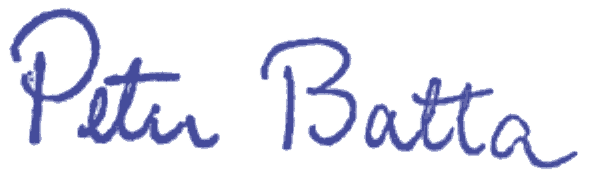 Peter Batta